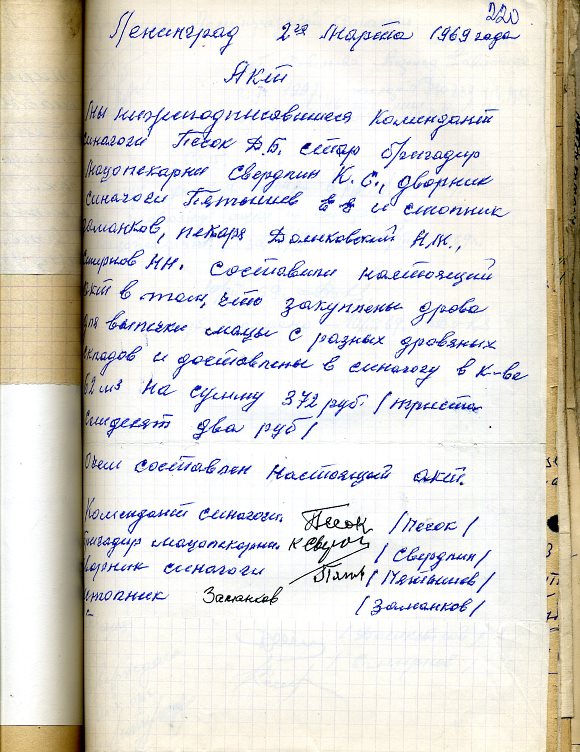 220
Ленинград 2го Марта 1969 года
Акт
Мы нижеподписавшиеся Комендант
синагоги Песок Д.Б. стар бригадир
Мацопекарни Свердлин К.С., дворник
синагоги Пятышев и стопник
Заманков, пекаря Долиновский Н.М.,
Смирнов Н.Н. составили настоящий
акт в том, что закуплены дрова
для выпечки мацы с разных дровяных
складов и доставлены в синагогу в к-ве
62 м3 на сумму 372 руб. /триста
семдесят два руб/
О чем составлен настоящий акт.
Комендант синагоги. Песок /Песок/
Бригадир мацопекарни. К Сверд /Свердлин/
Дворник синагоги Пят /Пятышев/
стопник Заманков /Заманков/